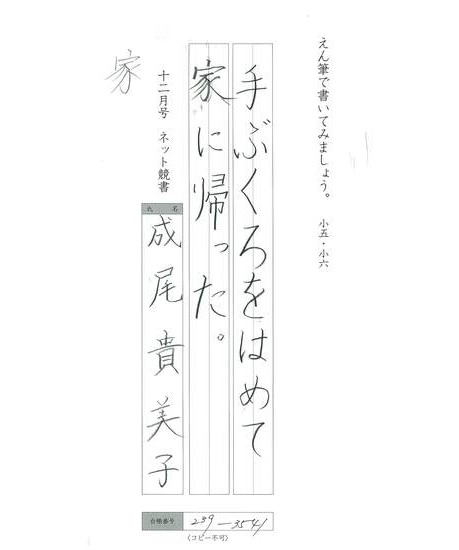 えん筆で書いてみましょう。 小五・小六
手ぶくろをはめて
家に帰った。
十二月号 ネット競書
氏名
成尾貴美子
家
台帳番号 239-3541
(コピー不可)